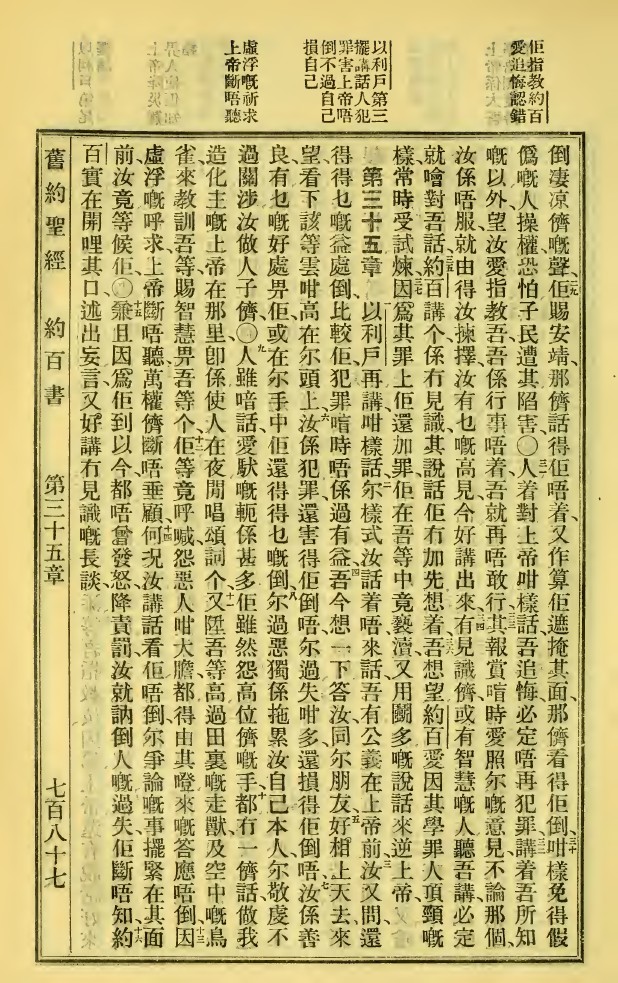 佢指教約百
愛追悔認錯
以利戶第三
擺講話人犯
罪害上帝唔
倒不過自己
損自己
虛浮嘅祈求
上帝斷唔聽
倒凄凉儕嘅聲、佢賜安靖、那儕話得佢唔着、又作算佢遮掩其面、那儕看得佢倒、咁樣免得假
僞嘅人操權、恐怕子民遭其陷害、〇人着對上帝咁樣話、吾追悔、必定唔再犯罪、講着吾所知
嘅以外、望汝愛指教吾、吾係行事唔着、吾就再唔敢行、其報賞喑時愛照尔嘅意見、不論那個
汝係唔服、就由得汝揀擇、汝有乜嘅高見、今好講出來、有見識儕、或有智慧嘅人聽吾講、必定
就噲對吾話、約百講个係冇見識、其說話佢冇加先想着、吾想望約百愛因其學罪人頂頸嘅
樣、常時受試煉、因爲其罪上佢還加罪、佢在吾等中竟褻瀆、又用鬬多嘅說話來逆上帝、
第三十五章 以利戶再講咁樣話、尔樣式汝話着唔、來話吾有公義在上帝前、汝又問還
得得乜嘅益處倒、比較佢犯罪喑時唔係過有益、吾今想一下答汝、同尔朋友、好相上天去來
望看下、該等雲咁高在尔頭上、汝係犯罪、還害得佢倒唔、尔過失咁多、還損得佢倒唔、汝係善
良、有乜嘅好處畀佢、或在尔手中佢還得得乜嘅倒、尔過惡獨係拖累汝自己本人、尔敬虔不
過關涉汝做人子儕、〇人雖喑話愛馱嘅軛係甚多、佢雖然怨高位儕嘅手、都冇一儕話、做我
造化主嘅上帝在那里、卽係使人在夜間唱頌詞个、又陞吾等高過田裏嘅走獸、及空中嘅鳥
雀、來教訓吾等、賜智慧畀吾等个、佢等竟呼喊怨惡人咁大膽、都得由其噔來嘅答應唔倒、因
虛浮嘅呼求、上帝斷唔聽、萬權儕斷唔垂顧、何况汝講話看佢唔倒、尔爭論嘅事擺緊在其面
前、汝竟等候佢、〇兼且因爲佢到以今都唔曾發怒、降責罰、汝就訥倒人嘅過失佢斷唔知、約
百實在開哩其口、述出妄言、又好講冇見識嘅長談、
舊約聖經 約百書 第三十五章 七百八十七